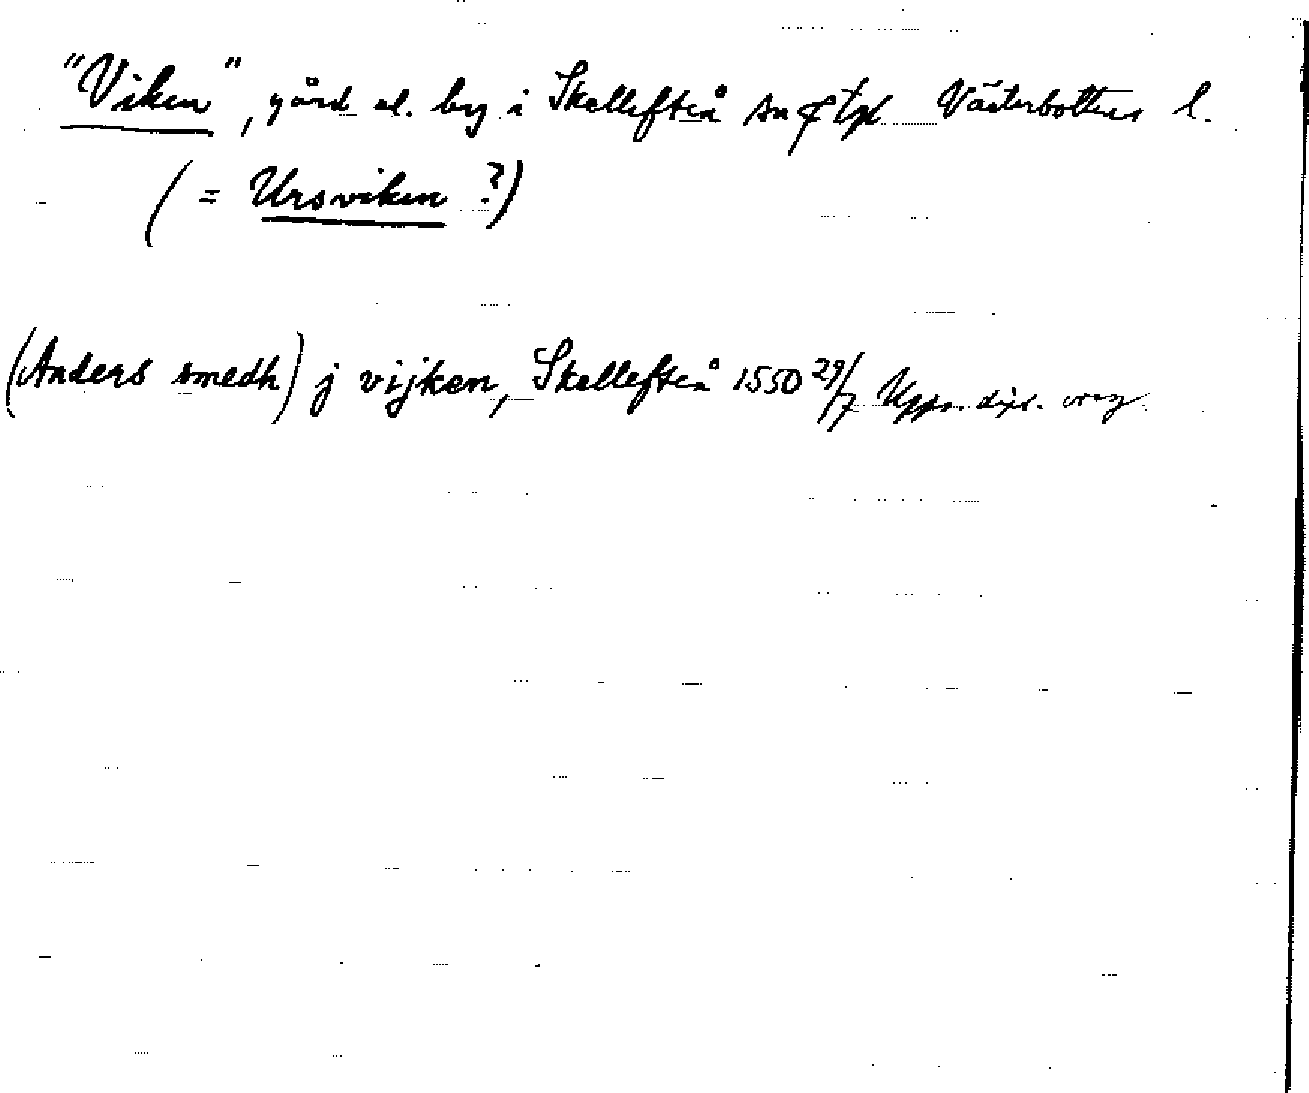 "Viken", gård el. by i Skellefteå sn o tpl Västerbottens l.
(= Ursviken ?)
(Anders smedh) j vijken, Skellefteå 1550 29/7 Upps. dipl. orig.